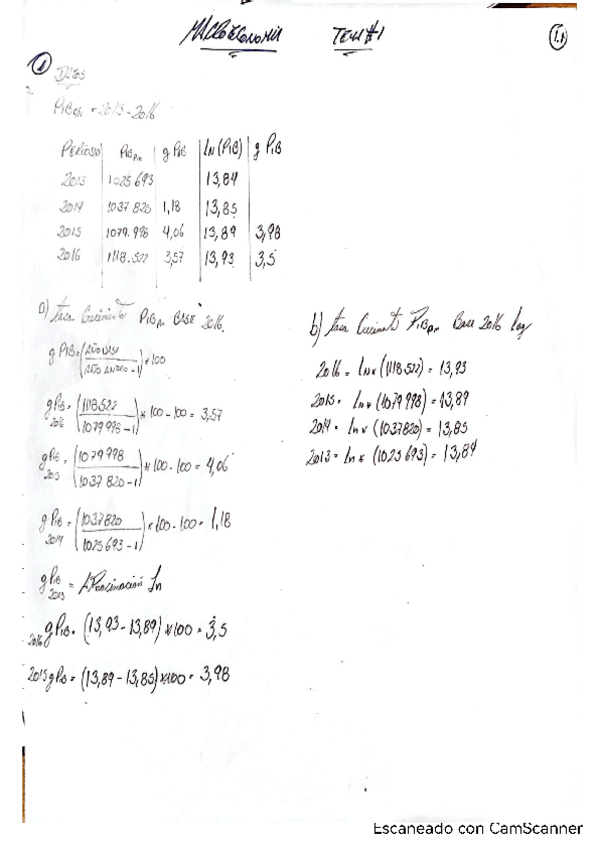 MICROECONOMIA TEMA #1 1.1
1 DATOS
PIBpm = 2013-2016
PERÍODO PIBpm g PIB LN(PIB) g PIB
2013 1025693 13,84
2014 1037820 1,18 13,85
2015 1079.998 4,06 13,89 3,98
2016 1118.522 3,57 13,93 3,5
a) tasa Crecimiento PIBpm BASE 2016.
g PIB = (AÑO BASE / -1) * 100
gPIB 2016 = (1118522 / 1079998-1) * 100 - 100 = 3,57
gPIB 2015 = (1079998 / 1037820-1) * 100 - 100 = 4,06
gPIB 2014 = (1037820 / 1025693-1) * 100 - 100 = 1,18
gPIB 2013 = Aproximación Ln
2016 gPIB = (13,93 - 13,89) * 100 = 3,5
2015 gPIB = (13,89 - 13,85) * 100 = 3,98
b) tasa Crecimiento PIBpm Base 2016 log
2016 = ln * (1118522) = 13,93
2015 = ln * (1079998) = 13,89
2014 = ln * (1037820) = 13,85
2013 = ln * (1025693) = 13,84
Escaneado con CamScanner